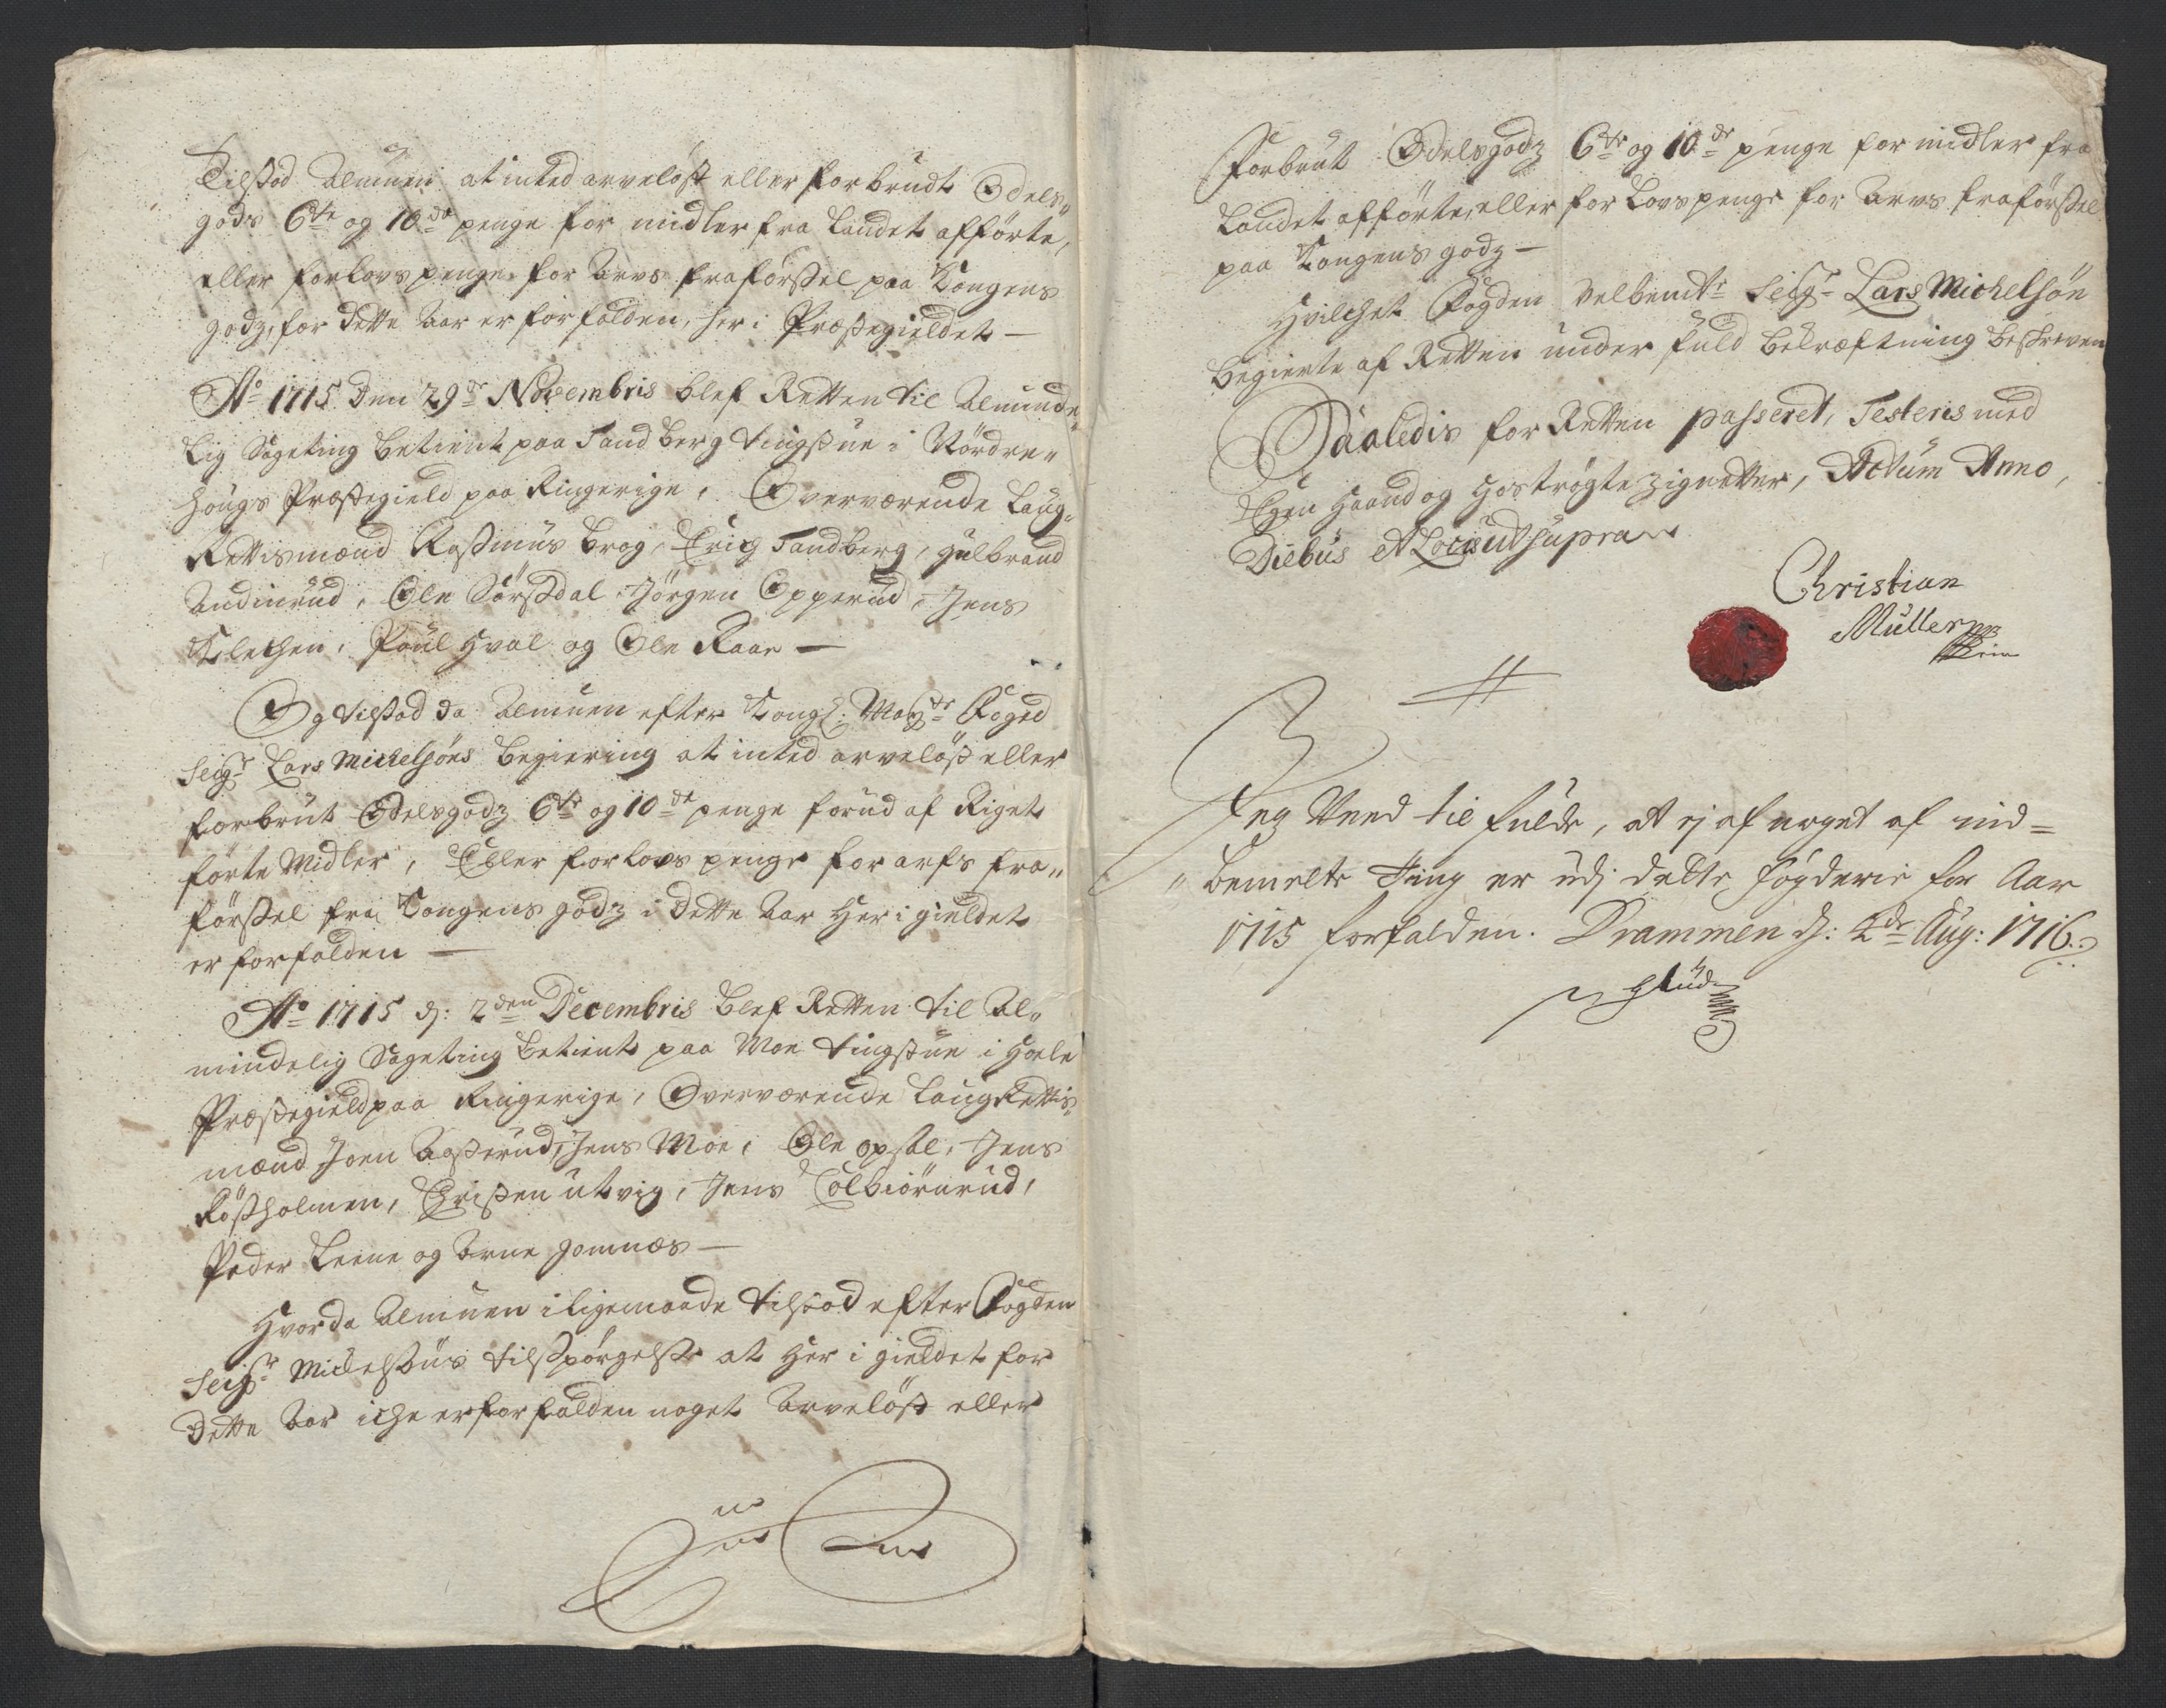 Tilstod Almuen at inted arveløst eller forbrudt Odels„
gods 6te og 10de penge for midler fra Landet afførte,
eller forlovs penge for Arvs fraførssel paa Kongens
godz, for dette Aar er forfalden, her i Præstegieldet —
Ao 1715 Den 29de Novembris blef Retten til Alminde„
lig Sageting betient paa Tandberg tingstue i Nordre„
Hougs Præstegield paa Ringerige, Overværende Laug„
Rettismænd Rasmus Brog, Erich Tandberg, Gulbrand
Ole Sørssdal Jørgen Opperud, Jens
Klechen, Poul Hval og Ole Raae —
Og tilstod da Almuen efter Kongl: Mayts Foged
Seigr Lars Michelsøns Begiering at inted arveløst eller
forbrut Odelsgodz 6te og 10de penge forud af Riget
førte Midler, Eller forlovs penge for arfs fra„
førssel fra Kongens godz i dette Aar Her i gieldet
er forfalden —
Ao 1715 d: 2den Decembris blef Retten til Al„
mindelig Sageting betient paa Moe tingstue i Hole
Præstegield paa Ringerige, Overværende LaugRettis„
mænd Joen Jens Moe, Ole opsal, Jens
Røssholmen, Christen utvig, Jens Tolbiørnrud,
Peder Leene og Arne Gomnæs —
Hvor da Almuen i ligemaade tilstod efter Fogden
Seigr Michelssøns tilsspørgelsse at Her i gieldet for
Dette Aar iche er forfalden noget Arveløst eller
Forbrut Odelsgodz 6te og 10de penge for midler fra
Landet afførte, eller for Lovspenge for Arvs fraførssel
paa Kongens godz —
Hvilchet Fogden Velbemte Seigr Lars Michelsøn
Begierte af Retten under fuld Bekræftning beskreven
Saaledis for Retten passeret, Testeris med
Egen Haand og Hostrøgte zignetter, Actum Anno,
Diebus et Locis ut supra
Christian
Muller
Jeg Veed til fulde, at ej af noget af ind=
„bemelte Ting er udj dette fogderie for Aar
1715 forfalden. Drammen d: 4de Aug: 1716.